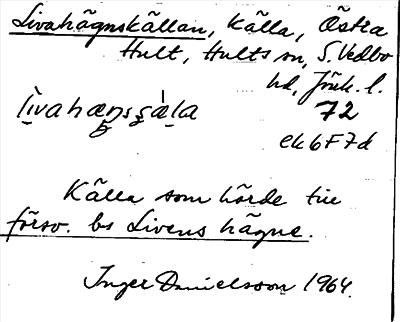 Livahägnskällan, Källa, Östra
Hult, Hults sn, S. Vedbo
hd, Jönk. l.
72
ek 6F7d
Källa som hörde till
försv. bs Livens hägne.
Inger Danielsson 1964.